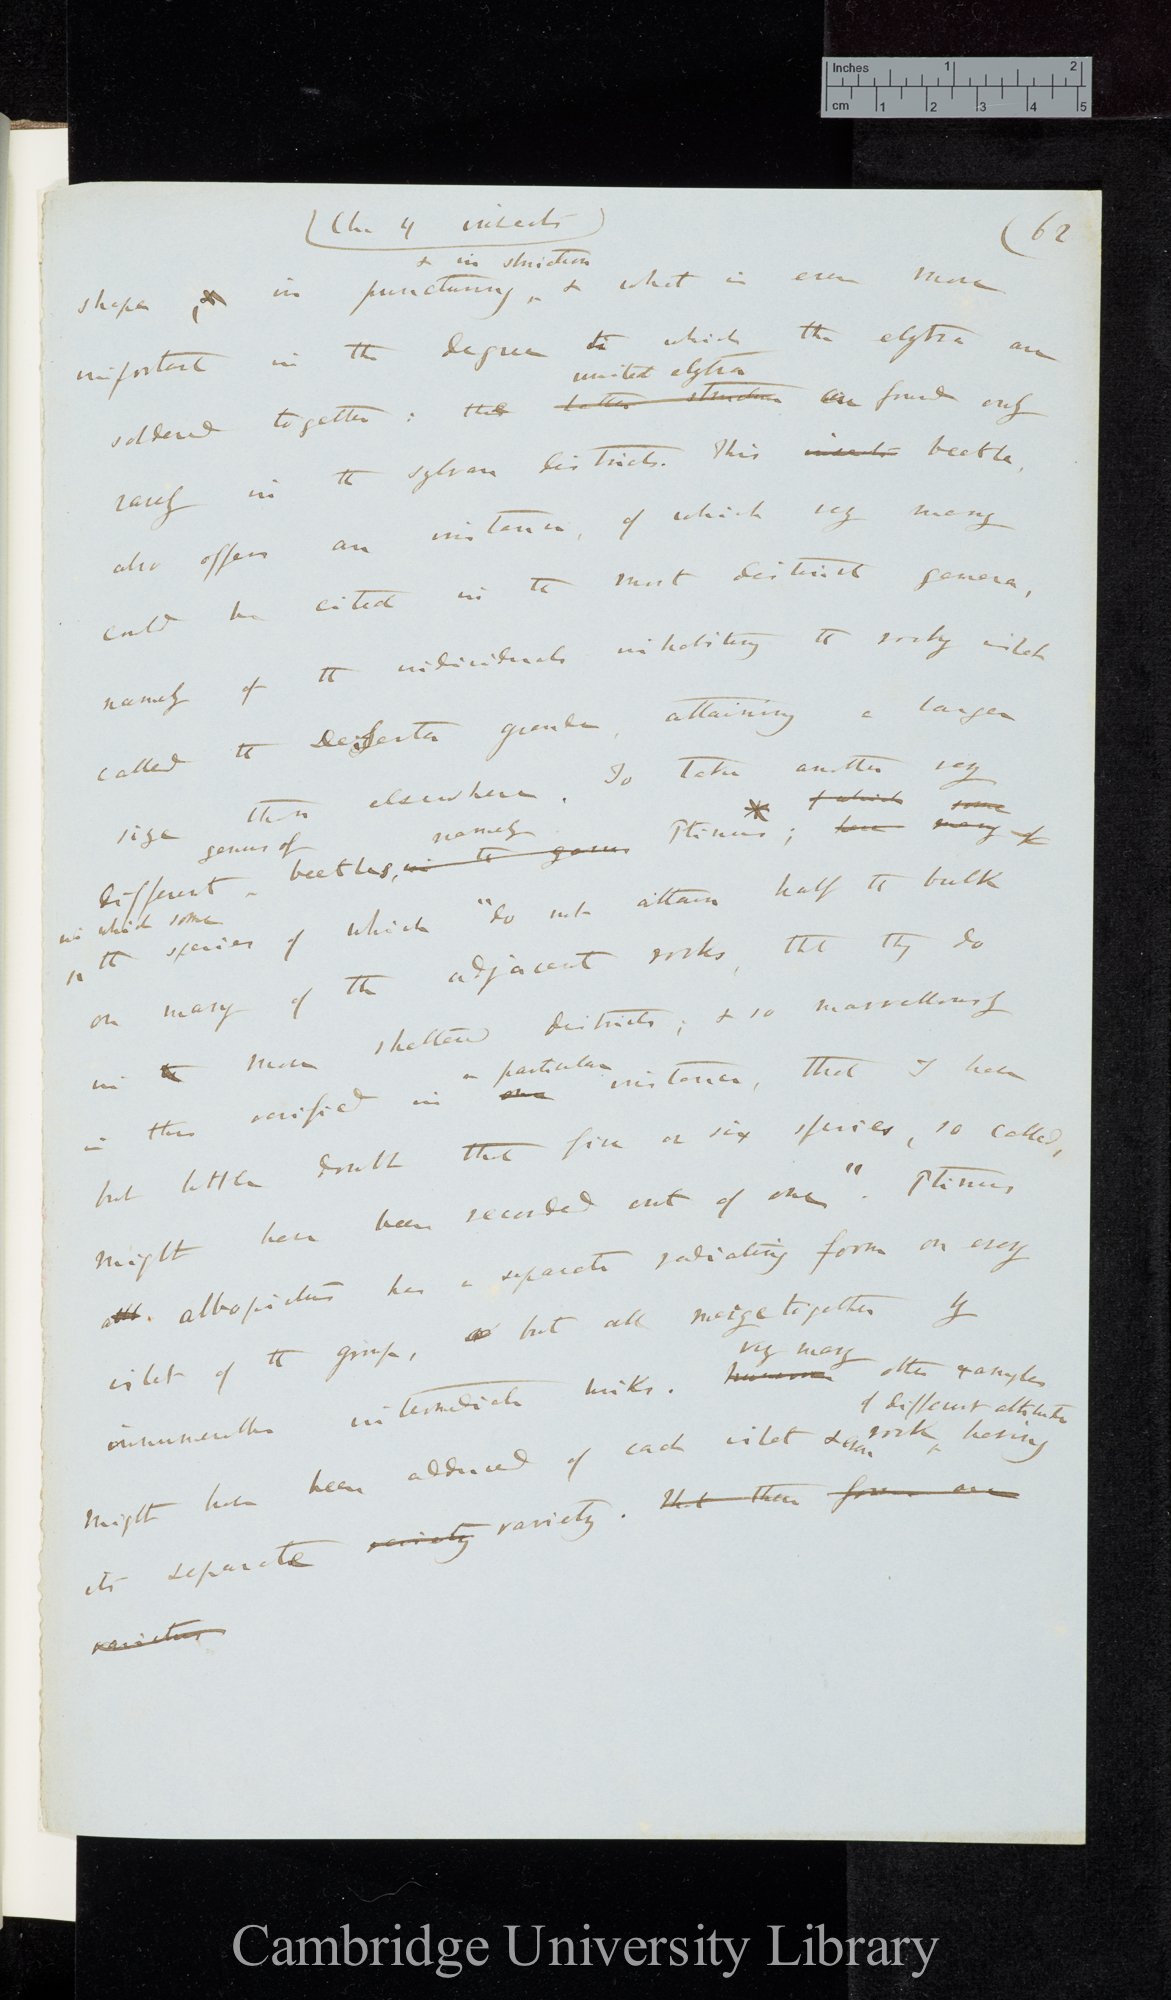 Inches 1 2
cm 1 2 3 4 5
(Ch. 4 insects)
(62
& in striation
shape, in puncturing, & what is even more
important in the degree to which the elytra are
united elytra
soldered together: the latter structure are found only
rarely in the sylvan districts. This insects beetle,
also offers an instance, of which very many
could be cited in the most distinct genera,
namely of the individuals inhabiting the rocky islet
called the Deserta grande, attaining a larger
size than elsewhere. To take another very
genus of namely of which some
different beetles, in the genus Ptinus; have many of
in which some
the species of which "do not attain half the bulk
on many of the adjacent rocks, that they do
in the more sheltered districts; & so marvellously
a particular
is this verified in one instance, that I have
but little doubt that five or six species, so called,
might have been recorded out of one". Ptinus
alb. albopictus has a separate radiating form on every
islet of the group, but all merge together by
very many
innumerable intermediate links. numerous other examples
of different altitudes
might have been adduced of each islet & even rock having
its separate variety variety. That these forms are
varieties
Cambridge University Library